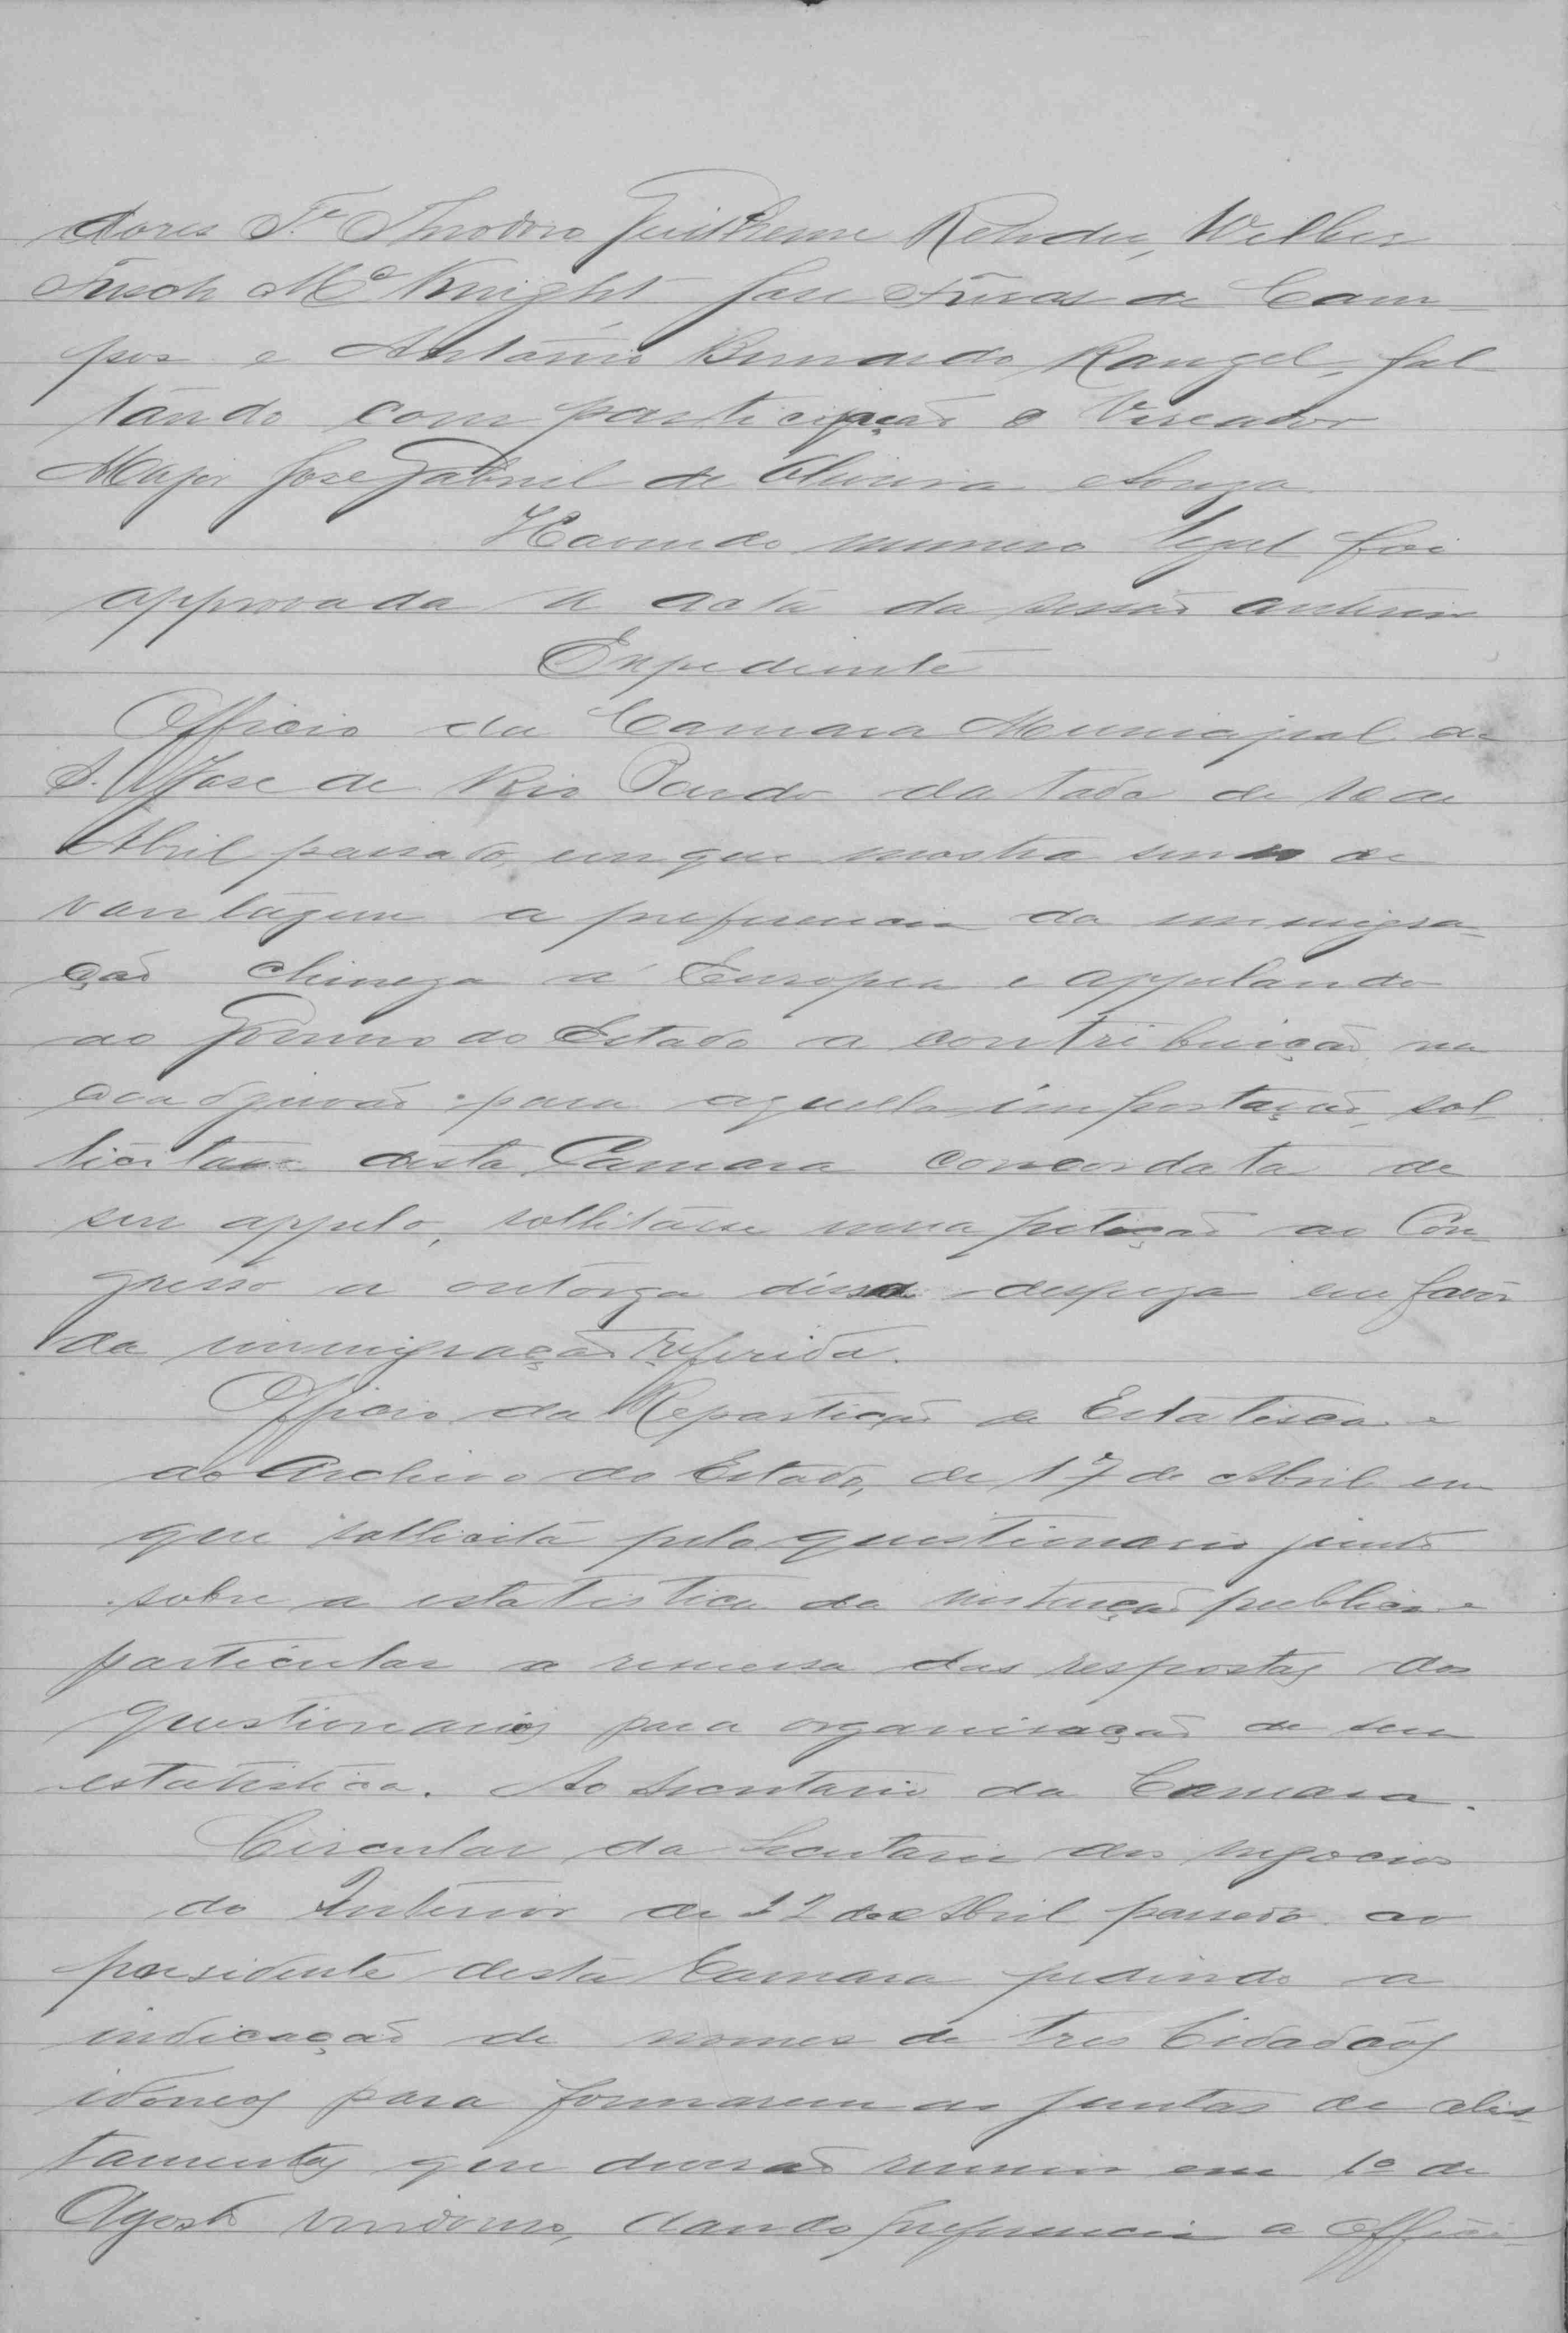 dores Fe Theodoro Guilherme Rehder, Wilber
Fisch Mc Knight José Ferras de Cam-
pos e Antonio Bernardo Rangel, fal
tando com participação o Vereador
Major José Gabriel de Oliveira Souza
Havendo numero legal foi
approvada a acta da sessão anterior
Expediente
Officio da Camara Municipal de
S. José de Rio Pardo datada de 10 de
Abril passado, em que mostra ser de
vantagem a preferencia da immigra-
ção chineza á Europea e appelando
ao Governo do Estado a contribuição na
para aquella importação, sol-
licita desta Camara concordata de
seu appelo, numa petição ao Con-
gresso a outorga dessa despeza em favor
da immigração referida.
Officio da Repartição de Estatisca e
do Archivo do Estado, de 17 de Abril em
que sollicita pelo questionario junto
sobre a estatistica da instrucção publica e
particular a remessa das respostas dos
questionarios para organisação de sua
estatistica. Ao Secretario da Camara.
Circular da Secretaria dos negocios
do Interior de 22 de Abril passado ao
presidente desta Camara pedindo a
indicação de nomes de tres Cidadãos
idoneos para formarem as juntas de alis-
tamentos que deverão reunir em 1º de
Agosto vindouro, dando preferencia a offici-